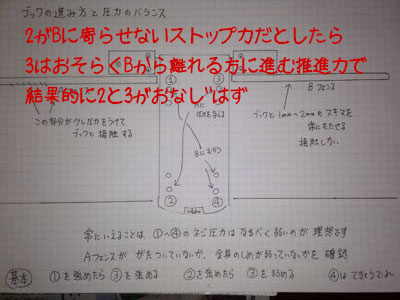 ブックの進み方と圧力のバランス
2がBに寄らせないストップ力だとしたら
3はおそらくBから離れる方に進む推進力で
結果的に2と3がおなじはず
① ③
Bフェンス
この部分が少し圧力をうけて
ブックと接触する
圧力を与える
ブックと1mm〜2mmのスキマを
常にもたせる
接触しない
② ④
常にいえることは、①〜④のネジ圧力はなるべく弱いのが理想です
Aフェンスががたついていないか、金具のしめが弱っていないかを確認
基本 ①を強めたら③を強める ②を強めたら③を弱める ④はてきとうでよい